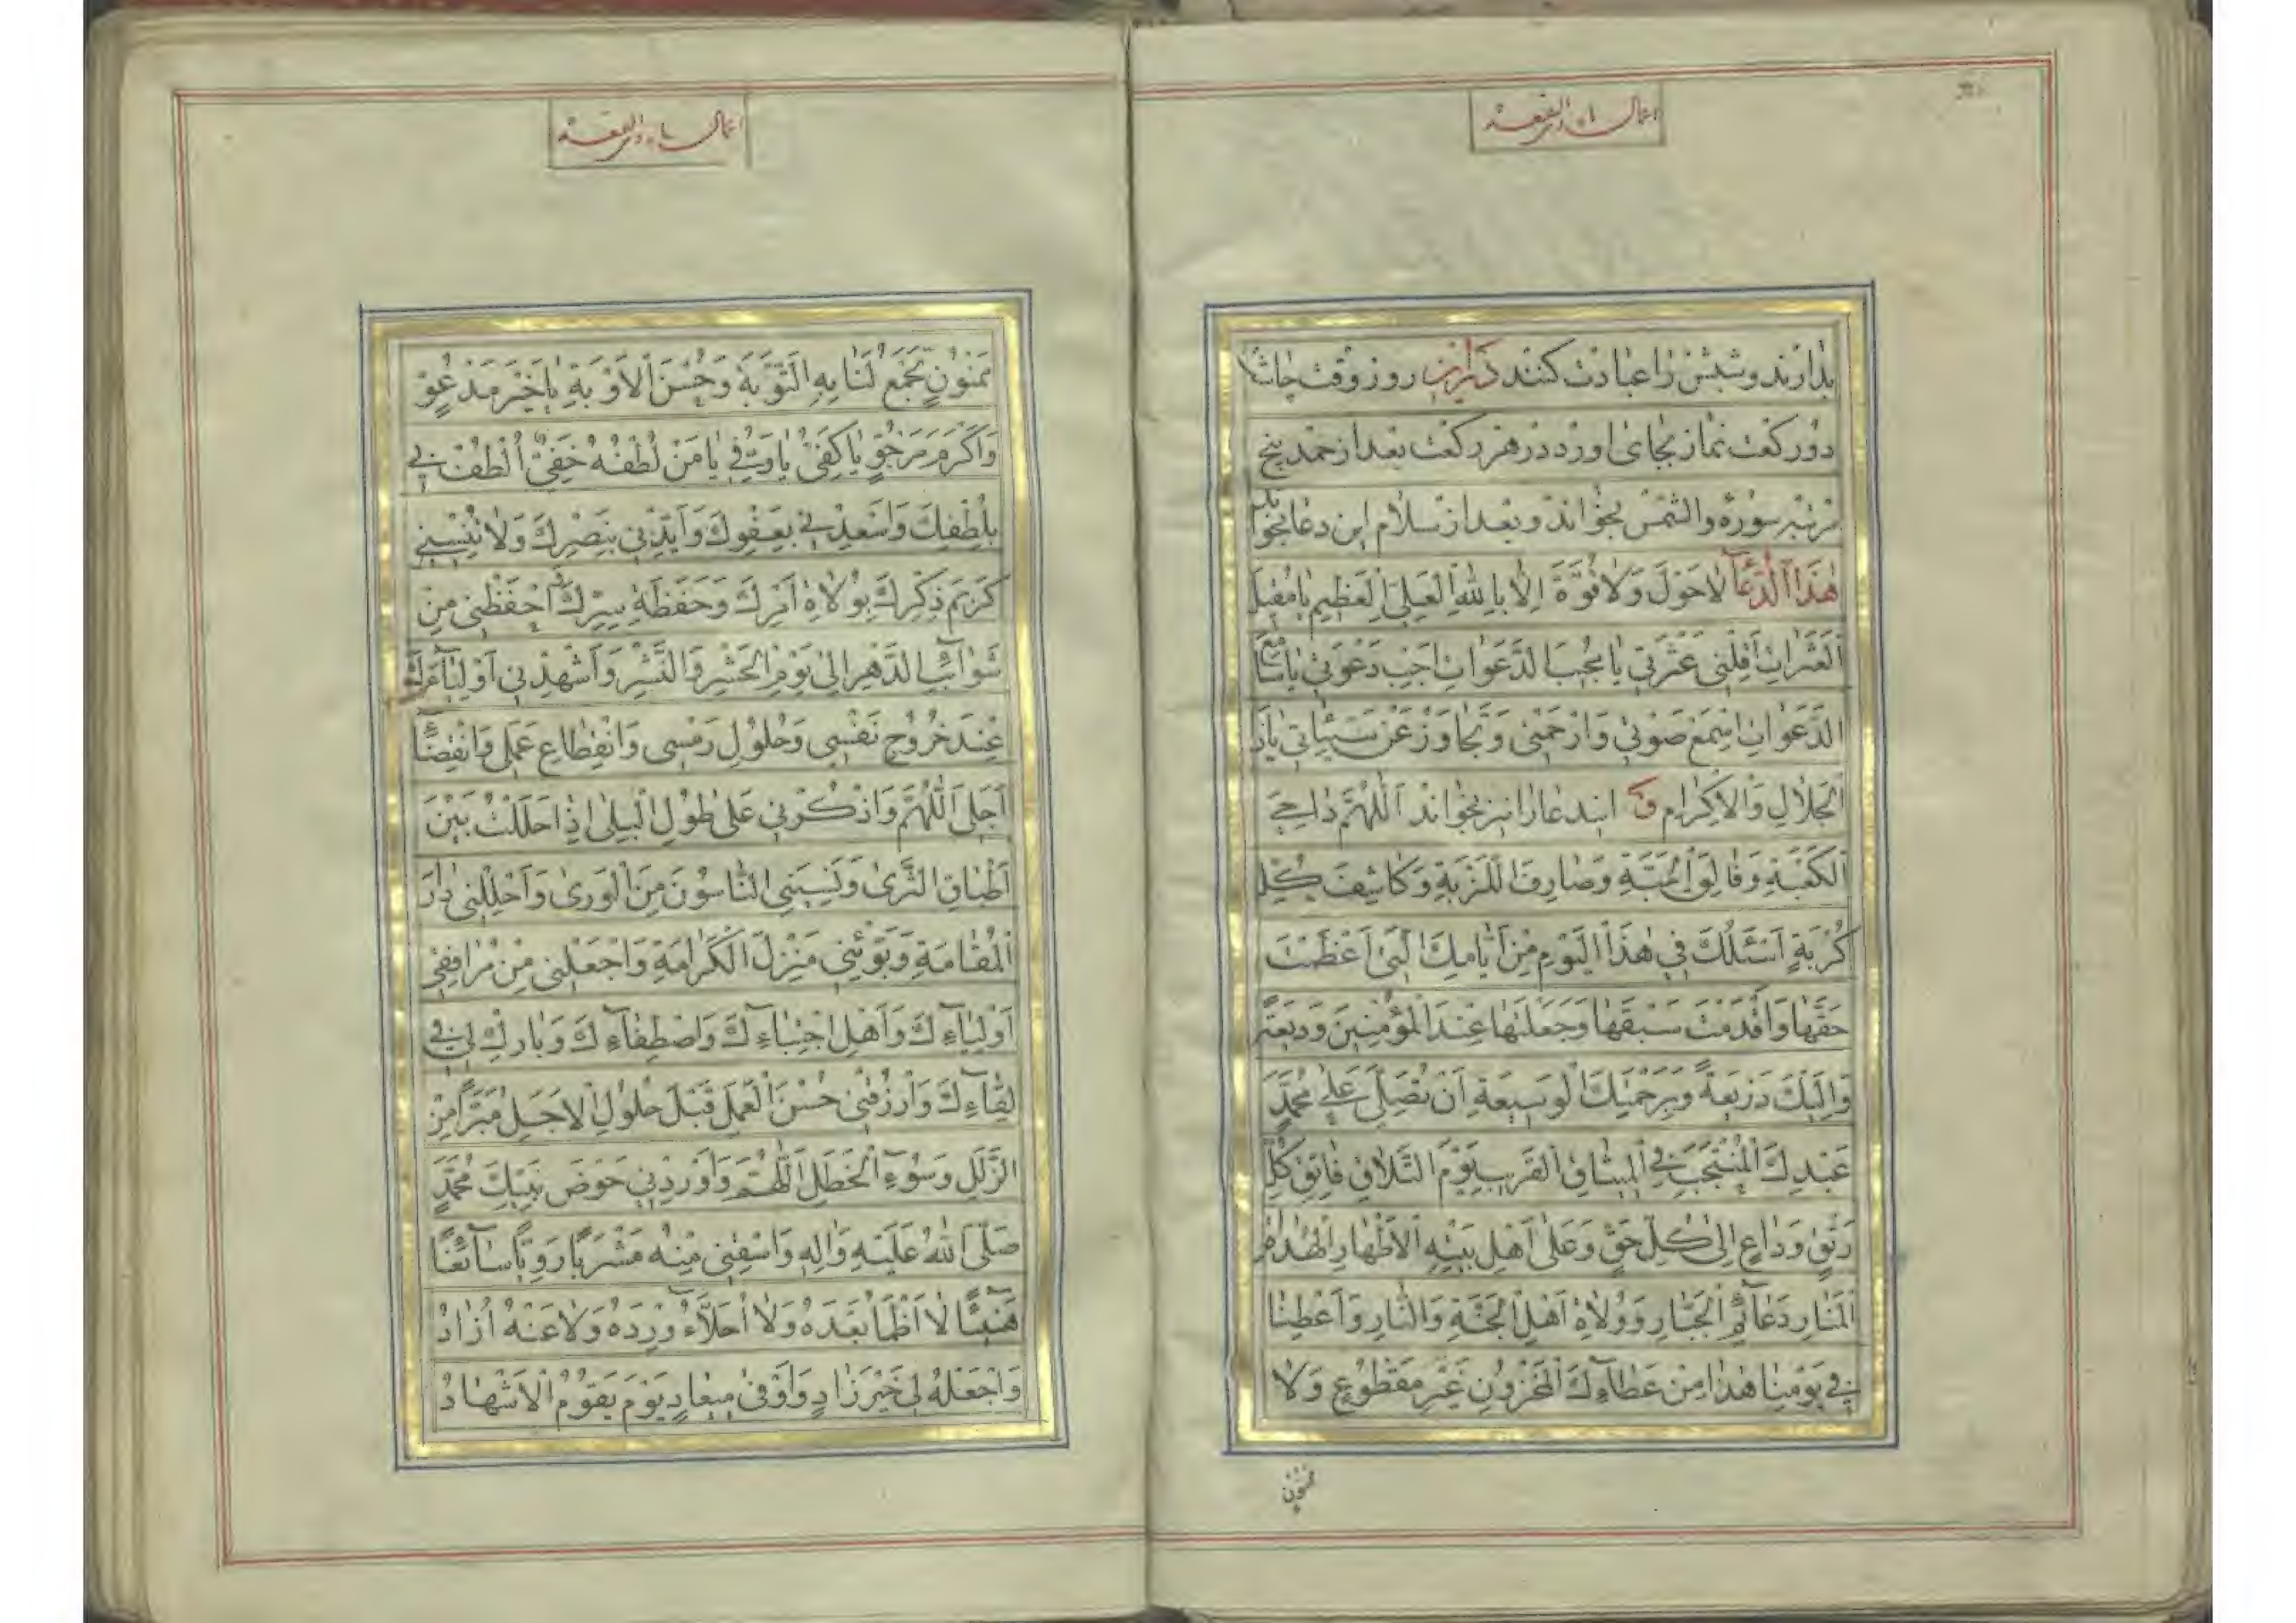 اعمال ماه ذی القعده
بدارند و شبش را عبادت کنند در این روز وقت چاشت
دو رکعت نماز بجای اورد در هر رکعت بعد از حمد پنج
مرتبه سوره والشمس بخواند و بعد از سلام این دعا بخواند
هٰذَا الدُّعَآ لاحَوْلَ وَلا قُوَّةَ اِلّا بِاللّٰهِ الْعَلِیِّ الْعَظِیمِ یا مُقِیلَ
الْعَثَراتِ اَقِلْنی عَثْرَتی یا مُجیبَ الدَّعَواتِ اَجِبْ دَعْوَتی یا سامِعَ
الدَّعَواتِ اِسْمَعْ صَوْتی وَارْحَمْنی وَتَجاوَزْ عَنْ سَیِّئاتی یا ذَا
الْجَلالِ وَالْاِکْرامِ و ایندعا را نیز بخواند اَللّٰهُمَّ داحِیَ
الْکَعْبَةِ وَفالِقَ الْحَبَّةِ وَصارِفَ اللَّزْبَةِ وَکاشِفَ کُلِّ
کُرْبَةٍ اَسْئَلُكَ فی هٰذَا الْیَوْمِ مِنْ اَیّامِكَ الَّتی اَعْظَمْتَ
حَقَّها وَاَقْدَمْتَ سَبْقَها وَجَعَلْتَها عِنْدَ الْمُؤْمِنینَ وَدیعَةً
وَاِلَیْكَ ذَریعَةً وَبِرَحْمَتِكَ الْوَسیعَةِ اَنْ تُصَلِّیَ عَلیٰ مُحَمَّدٍ
عَبْدِكَ الْمُنْتَجَبِ فِی الْمیثاقِ الْقَریبِ یَوْمَ التَّلاقِ فاتِقِ کُلِّ
رَتْقٍ وَداعٍ اِلیٰ کُلِّ حَقٍّ وَعَلیٰ اَهْلِ بَیْتِهِ الْاَطْهارِ الْهُداةِ
الْمَنارِ دَعآئِمِ الْجَبّارِ وَوُلاةِ اَهْلِ الْجَنَّةِ وَالنّارِ وَاَعْطِنا
فی یَوْمِنا هٰذا مِنْ عَطآءِكَ الْمَخْزُونِ غَیْرِ مَقْطُوعٍ وَلا
ممنون
اعمال ماه ذی القعده
مَمْنُونٍ تَجْمَعُ لَنا بِهِ التَّوْبَةَ وَحُسْنَ الْاَوْبَةِ یا خَیْرَ مَدْعُوٍّ
وَاَکْرَمَ مَرْجُوٍّ یا کَفِیُّ یا وَفِیُّ یا مَنْ لُطْفُهُ خَفِیٌّ اُلْطُفْ لی
بِلُطْفِكَ وَاَسْعِدْنی بِعَفْوِكَ وَاَیِّدْنی بِنَصْرِكَ وَلا تُنْسِنی
کَریمَ ذِکْرِكَ بِوُلاةِ اَمْرِكَ وَحَفَظَةِ سِرِّكَ احْفَظْنی مِنْ
شَوآئِبِ الدَّهْرِ اِلیٰ یَوْمِ الْحَشْرِ وَالنَّشْرِ وَاَشْهِدْنی اَوْلِیآءَكَ
عِنْدَ خُرُوجِ نَفْسی وَحُلُولِ رَمْسی وَانْقِطاعِ عَمَلی وَانْقِضآءِ
اَجَلی اَللّٰهُمَّ وَاذْکُرْنی عَلیٰ طُولِ الْبِلیٰ اِذا حَلَلْتُ بَیْنَ
اَطْباقِ الثَّریٰ وَنَسِیَنِی النّاسُونَ مِنَ الْوَریٰ وَاَحْلِلْنی دارَ
الْمُقامَةِ وَبَوِّئْنی مَنْزِلَ الْکَرامَةِ وَاجْعَلْنی مِنْ مُرافِقی
اَوْلِیآءِكَ وَاَهْلِ اجْتِبآءِكَ وَاصْطِفآءِكَ وَبارِكْ لی فی
لِقآءِكَ وَارْزُقْنی حُسْنَ الْعَمَلِ قَبْلَ حُلُولِ الْاَجَلِ مُبَرَّأً مِنَ
الزَّلَلِ وَسُوءِ الْخَطَلِ اَللّٰهُمَّ وَاَوْرِدْنی حَوْضَ نَبِیِّكَ مُحَمَّدٍ
صَلَّی اللّٰهُ عَلَیْهِ وَالِهِ وَاسْقِنی مِنْهُ مَشْرَبًا رَوِیًّا سآئِغًا
هَنیئًا لا اَظْمَأُ بَعْدَهُ وَلا اُحَلَّاُ وِرْدَهُ وَلا عَنْهُ اُزادُ
وَاجْعَلْهُ لی خَیْرَ زادٍ وَاَوْفیٰ میعادٍ یَوْمَ یَقُومُ الْاَشْهادُ